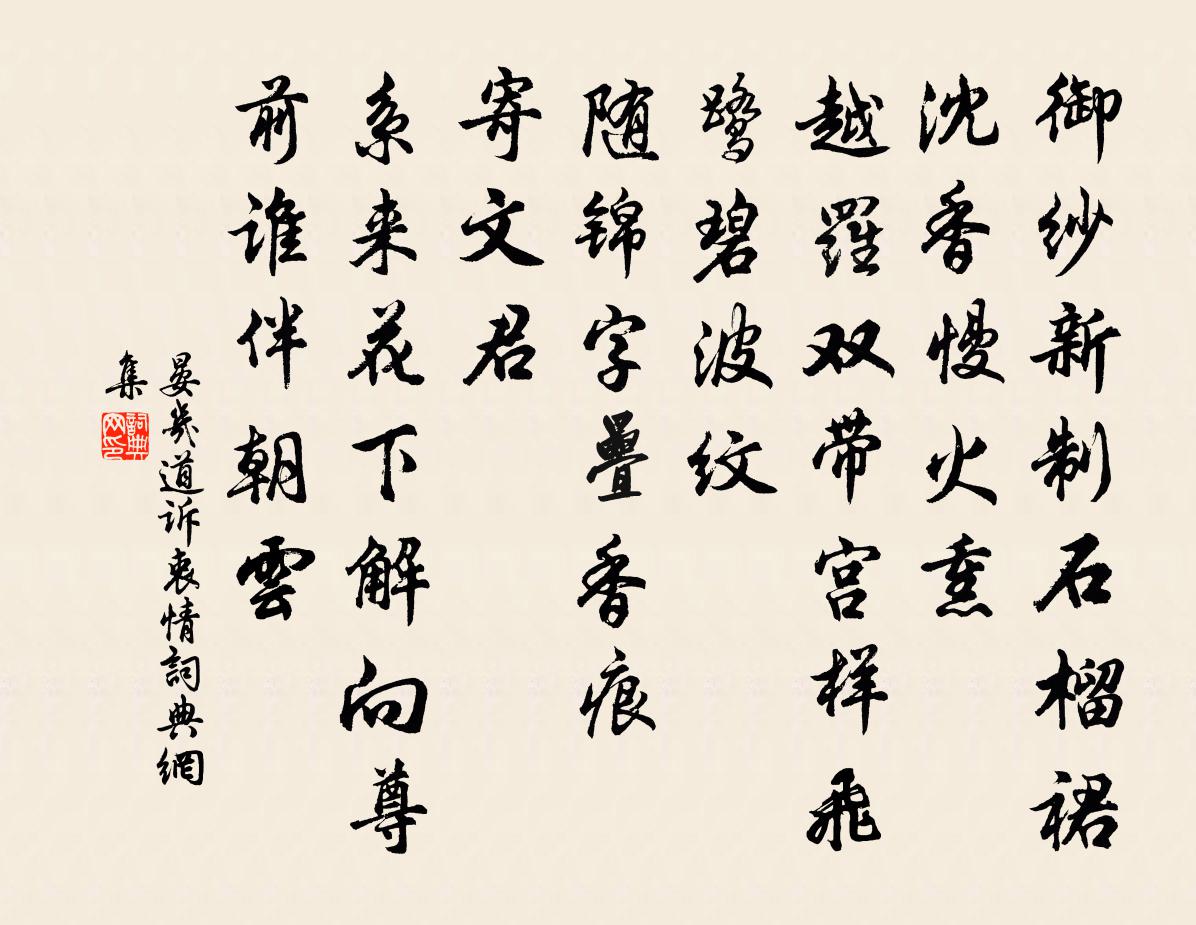 御纱新制石榴裙
沈香慢火熏
越羅双带宫样飛
鹭碧波纹
随锦字疊香痕
寄文君
系来花下解向尊
前谁伴朝雲
晏幾道诉衷情詞典網
集
詞典网印